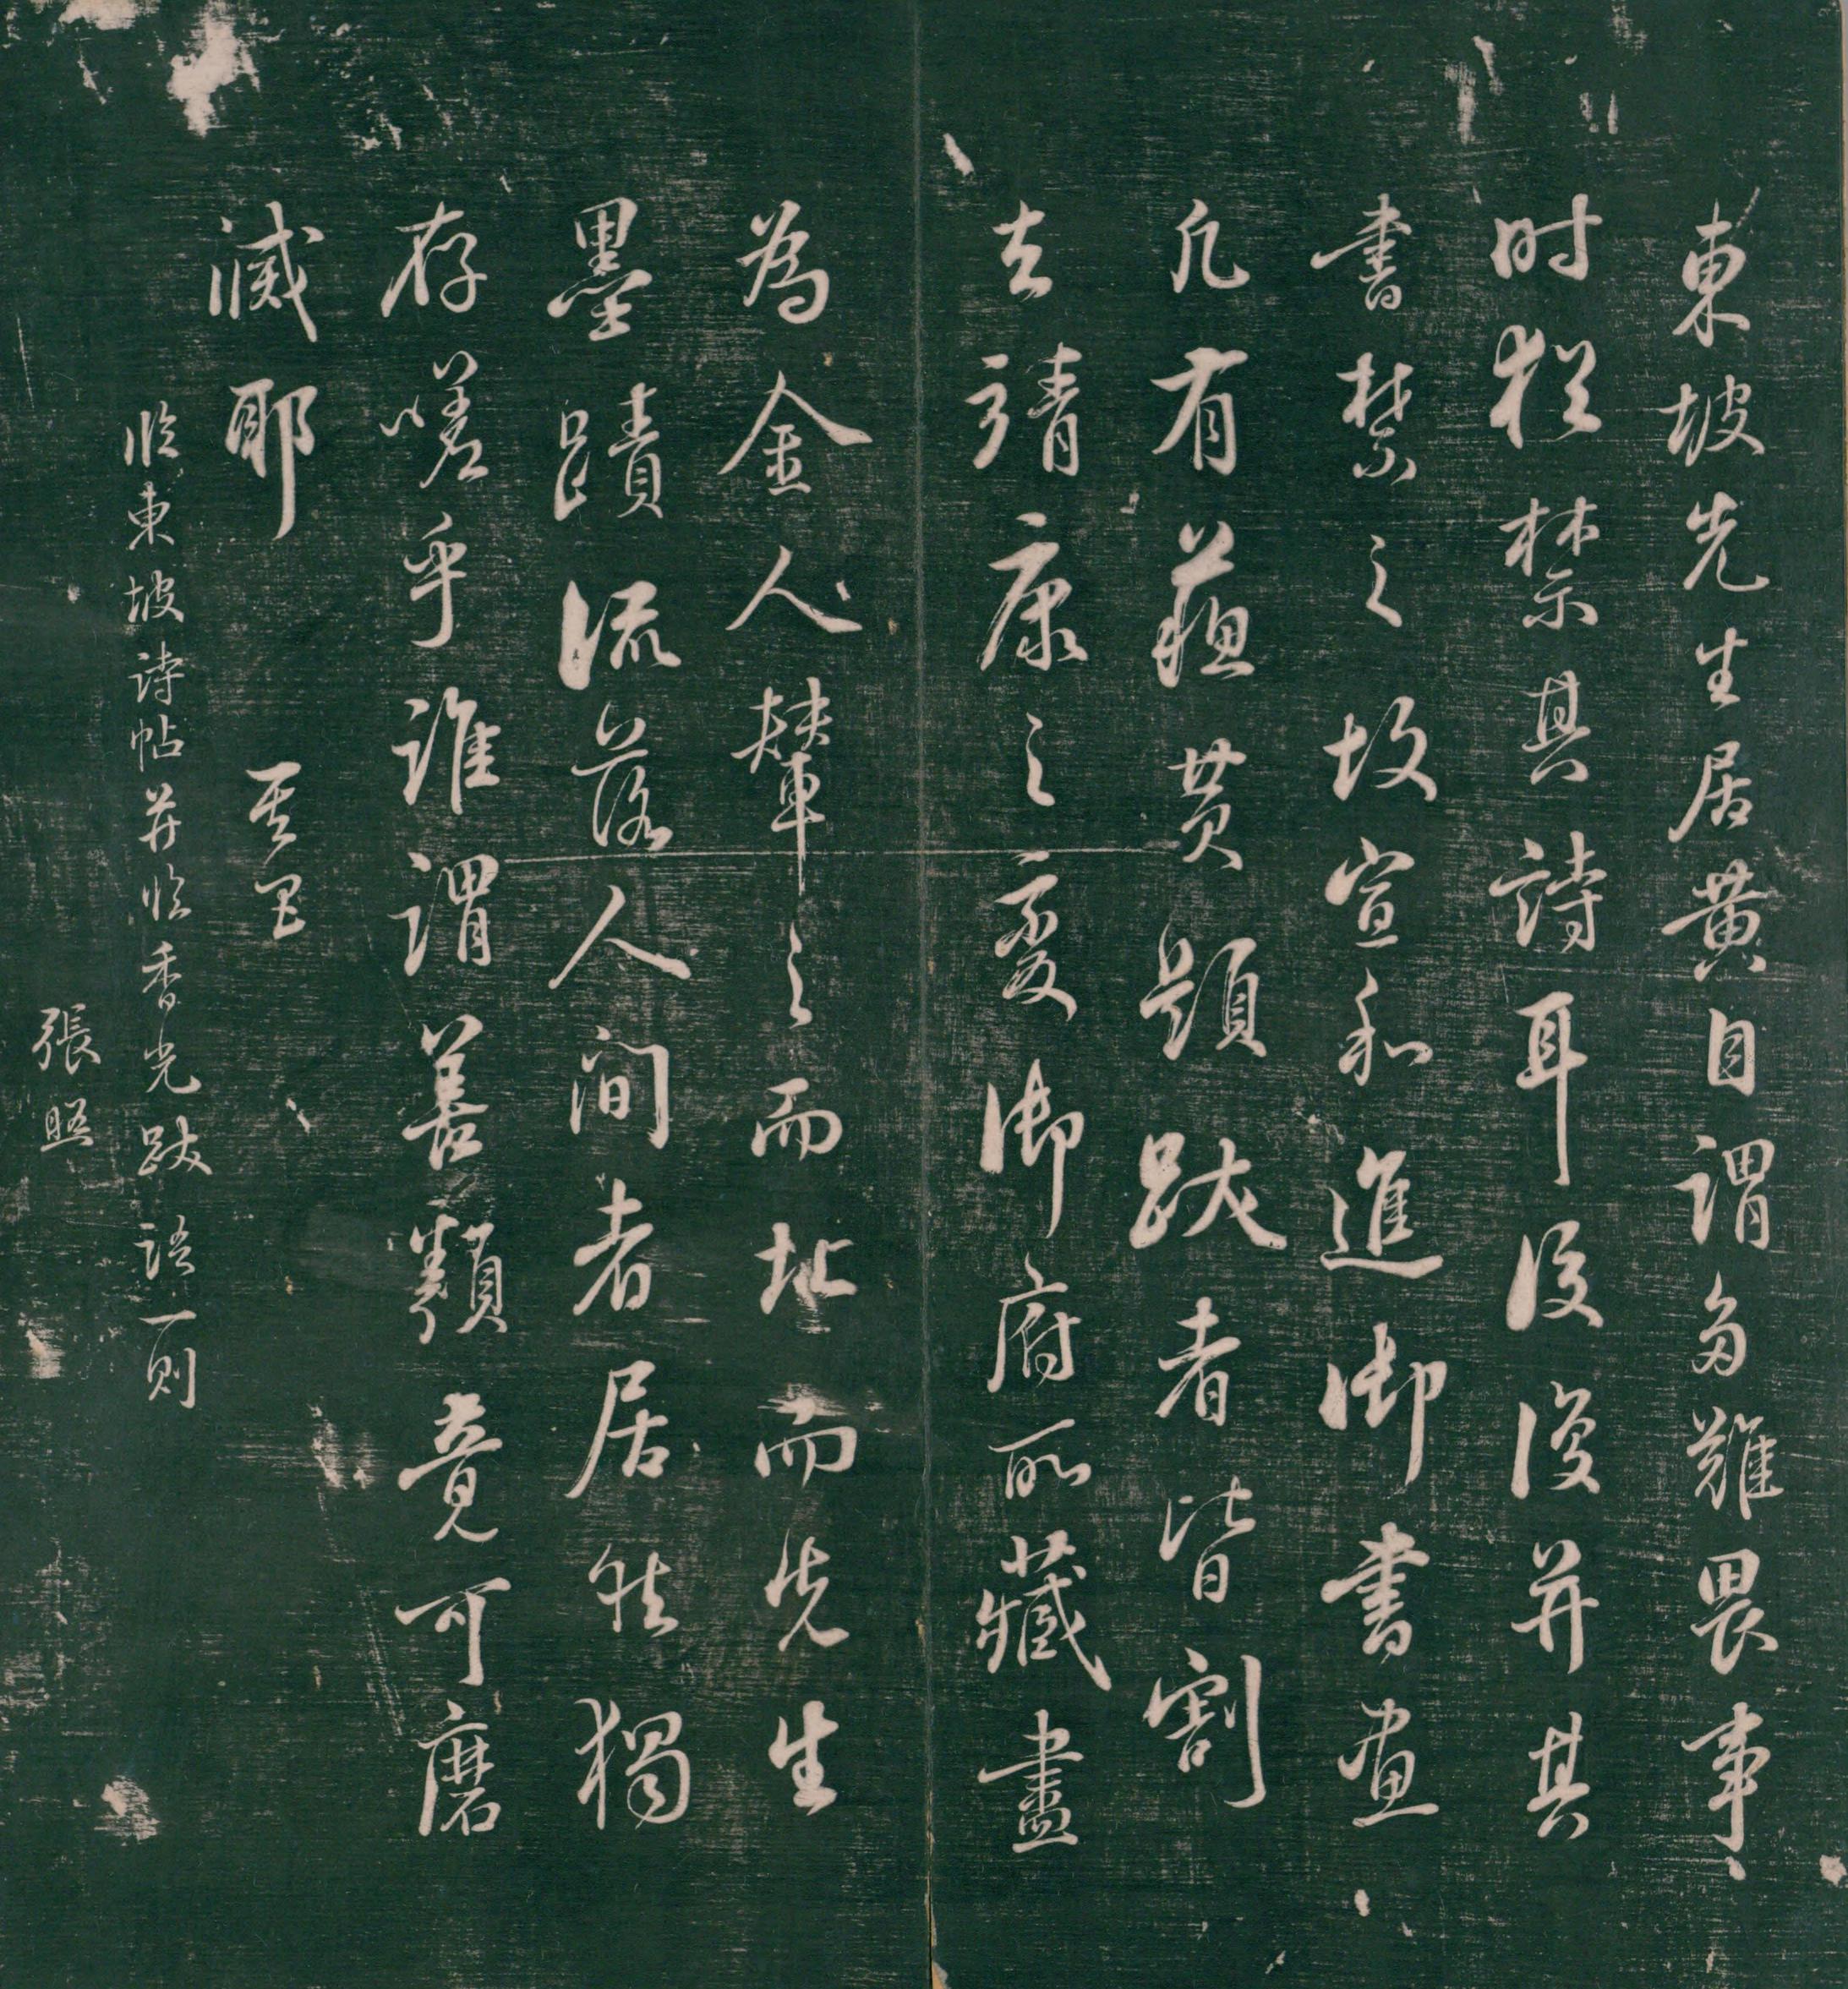 東坡先生居黄自謂多難畏事
时猶禁其詩耳後復并其
書禁之故宣和進御書画
凡有蘓黄題跋者皆割
去靖康之变御府所藏盡
為金人輦之而北而先生
墨蹟流落人间者居然獨
存嗟乎誰謂善類竟可磨
滅耶
其昌
临東坡詩帖并临香光跋語一則
張照